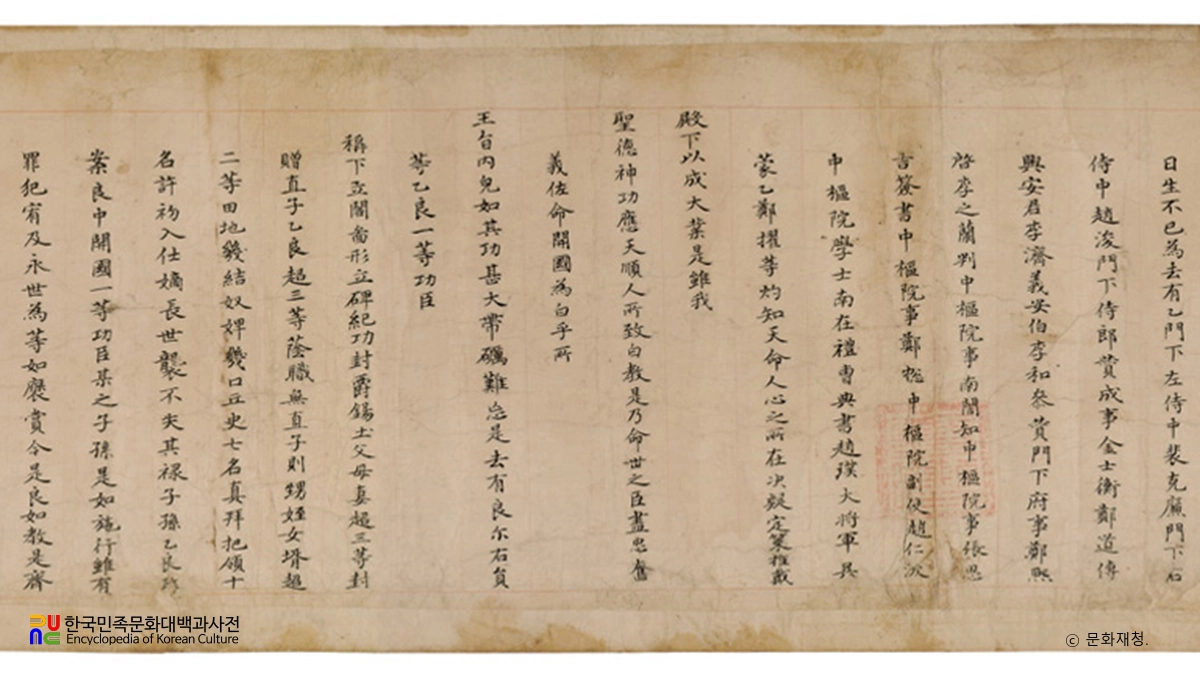 日生不已為去有乙門下左侍中裴克廉門下右
侍中趙浚門下侍郎賛成事金士衡鄭道傳
興安君李濟義安伯李和叅賛門下府事鄭熙
啓李之蘭判中樞院事南誾知中樞院事張思
吉簽書中樞院事鄭摠中樞院副使趙仁沃
中樞院學士南在禮曹典書趙璞大將軍吳
蒙乙鄭擢等灼知天命人心之所在决疑定策推戴
殿下以成大業是雖我
聖德神功應天順人所致白敎是乃命世之臣盡忠奮
義佐命開國為白乎所
王旨內皃如其功甚大帶礪難忘是去有良尒右員
等乙良一等功臣
稱下立閣畵形立碑紀功封爵錫土父母妻超三等封
贈直子乙良超三等蔭職無直子則甥姪女壻超
二等田地幾結奴婢幾口丘史七名真拜把領十
名許初入仕嫡長世襲不失其祿子孫乙良政
案良中開國一等功臣某之子孫是如施行雖有
罪犯宥及永世為等如褒賞令是良如敎是齊
한국민족문화대백과사전
Encyclopedia of Korean Culture
ⓒ 문화재청.